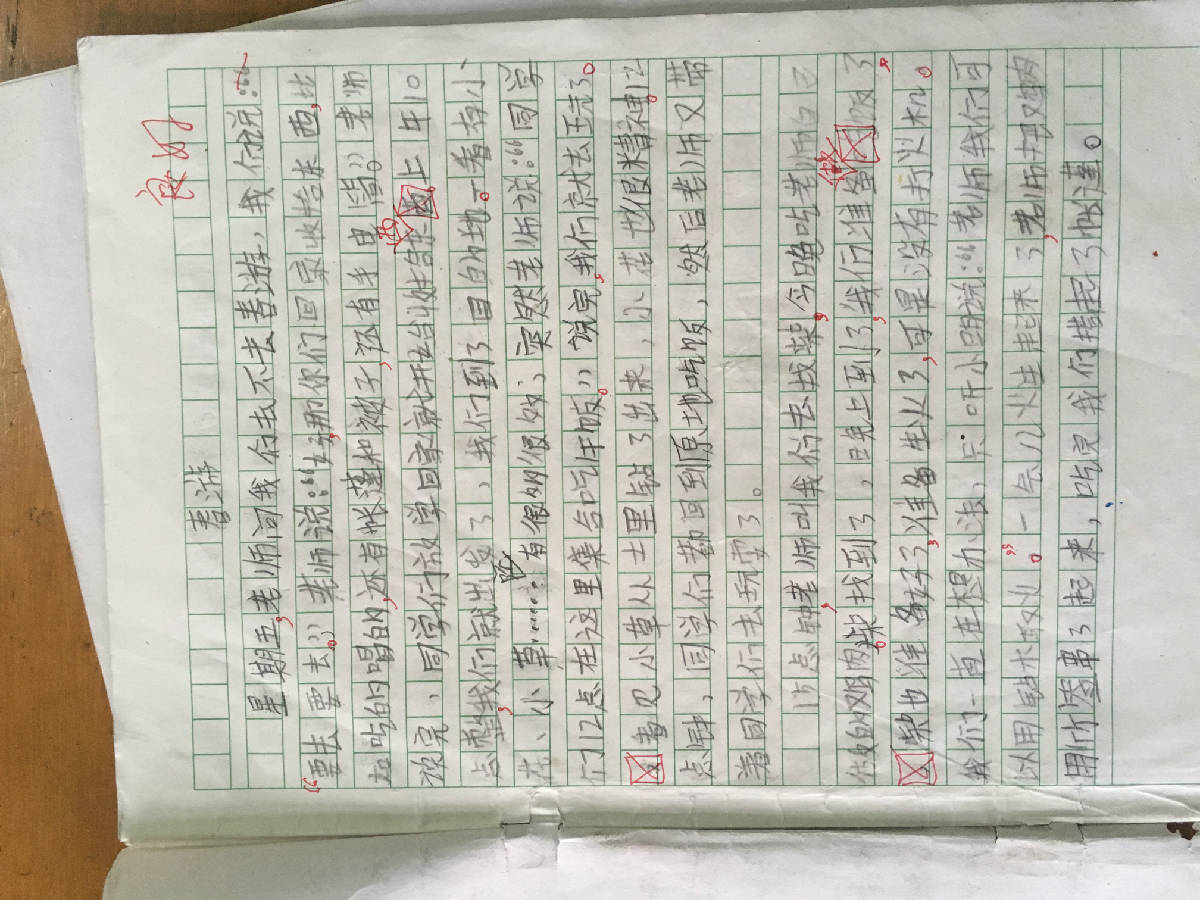 良好
春游
星期五,老师问我们去不去春游,我们说:“
“要去要去。”老师说:“好,那你们回家收拾东西,比
如吃的唱的,还有帐蓬和被子,还有手电筒。”老师
说完,同学们放学回家就开始收拾东西。上午10
点整,我们就出发了,我们到了目的地。一看有小
花、小草……有很多很多,突然老师说:“同学
们12点在这里集合吃午饭。”说完,我们就去玩了。
看见小草从土里钻了出来,小花也很精神。12
点钟,同学们都回到原地吃饭,然后老师又带
着同学们去玩耍了。
15点钟,老师叫我们去找柴,今晚吃老师自己
做的鸡肉。柴找到了,晚上到了,我们准备做饭了,
柴也准备好了,准备生火了,可是没有打火机。
我们一直在想办法,只听小明说:“老师我们可
以用钻木取火。”一会儿火生起来了,老师把鸡肉
用竹签串了起来,吃完我们搭起了帐蓬。